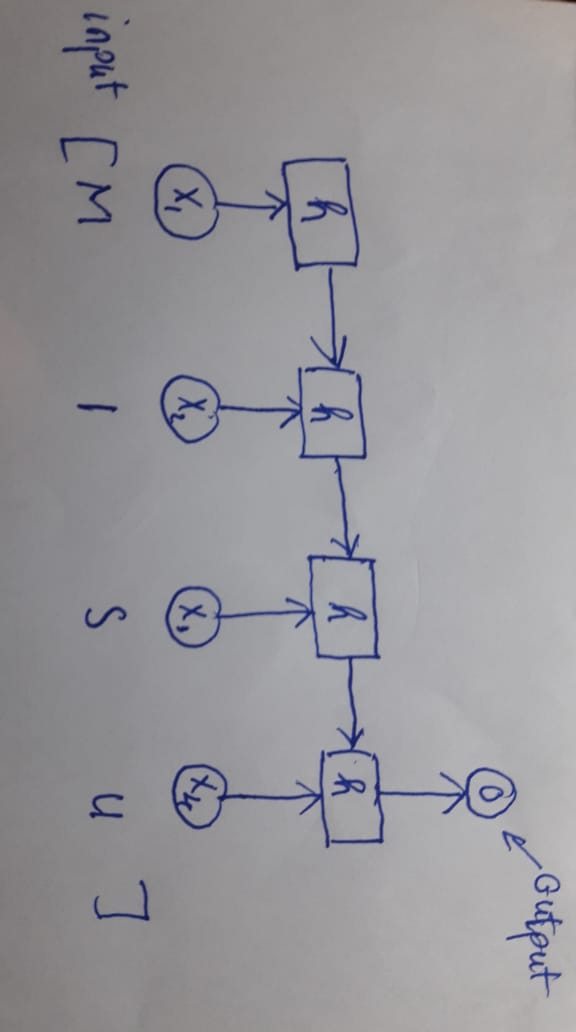 Output
O
h h h h
x₁ x₂ x₃ x₄
input [M I S U]